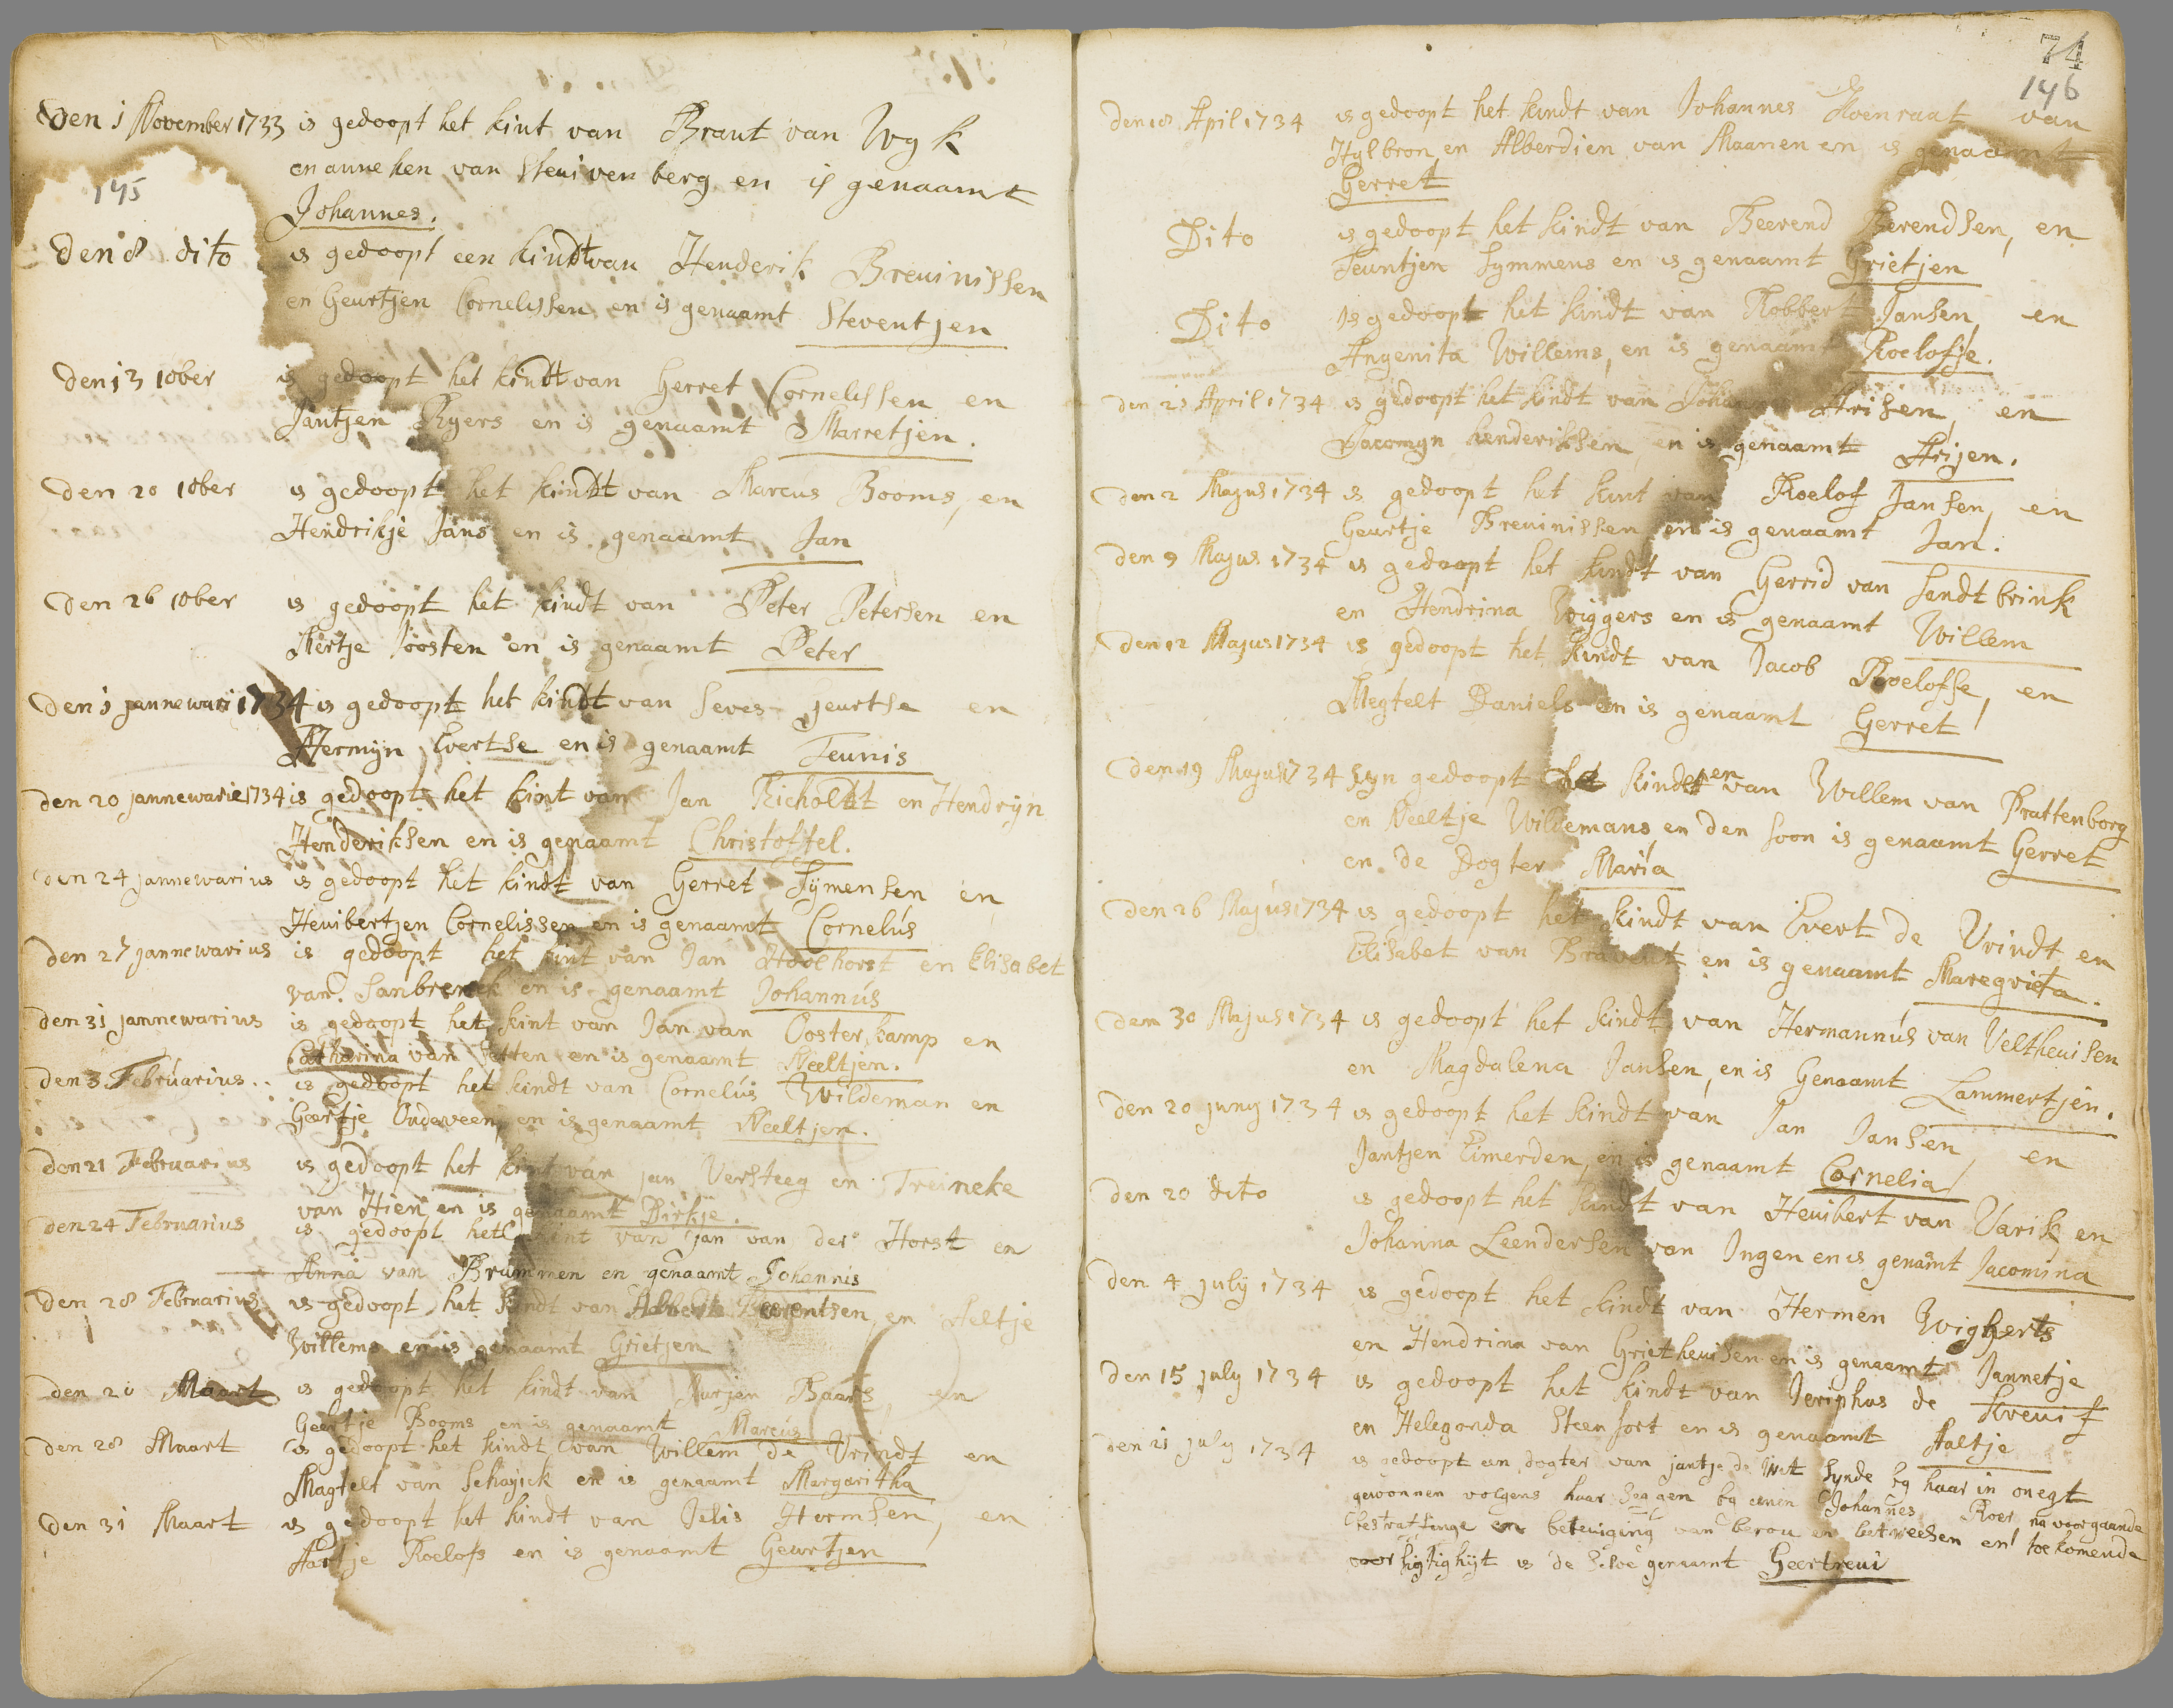 Den 1 November 1733 is gedoopt het kint van Brant van Wyk
en anneken van Steuivenberg en is genaamt
145
Johannes.
Den 8 dito is gedoopt een kindt van Henderik Breuinissen
en Geurtjen Cornelissen en is genaamt Steventjen
Den 13 10ber is gedoopt het kindt van Gerret Cornelissen en
Jantjen Ryers en is genaamt Marretjen.
Den 20 10ber is gedoopt het kindt van Marcus Booms, en
Hendrikje Jans en is genaamt Jan
Den 26 10ber is gedoopt het kindt van Peter Petersen en
Aertje Joosten en is genaamt Peter
Den 1 jannewari 1734 is gedoopt het kindt van Seves geurtse en
Hermyn Evertse en is genaamt Teunis
Den 20 jannewarie 1734 is gedoopt het kint van Jan Richoldt en Hendryn
Henderiksen en is genaamt Christoffel.
den 24 jannewarius is gedoopt het kindt van Gerret Symensen en
Heuibertjen Cornelissen en is genaamt Cornelus
Den 27 jannewarius is gedoopt het kint van Jan Hoolhorst en Elisabet
van en is genaamt Johannus
Den 31 jannewarius is gedoopt het kint van Jan van Oosterkamp en
Catharina van en is genaamt Neeltjen.
den 3 Februarius.. is gedoopt het kindt van Cornelus Wildeman en
Geertje Ondeween, en is genaamt Neeltjen.
den 21 Februarius is gedoopt het kint van jan Versteeg en Treineke
van Hien en is genaamt Dirkje.
den 24 Februarius is gedoopt het kint van jan van der Horst en
Anna van Brummen en genaamt Johannis
Den 28 Februarius is gedoopt het kindt van en Aeltje
Willems en is genaamt Grietjen
den 20 Maart is gedoopt het kindt van Baars, en
Geertje Booms en is genaamt Marcus
den 28 Maart is gedoopt het kindt van Willem de Vrindt en
Magtelt van Schayick en is genaamt Margaritha
den 31 Maart is gedoopt het kindt van Jelis Hermsen, en
Aartje Roelofs en is genaamt Geurtjen
74
146
Den 18 April 1734 is gedoopt het kindt van Johannes Koenraat van
Hylbron en Alberdien van Maanen en is genaamt
Gerret
Dito is gedoopt het kindt van Beerend Berendsen, en
Teuntjen Symmens en is genaamt Grietjen
Dito Is gedoopt het kindt van Robbert Jansen, en
Angenita Willems, en is genaamt Roelofje.
Den 25 April 1734 is gedoopt het kindt van Johannes Arisen, en
Jacomyn henderiksen, en is genaamt Arijen.
Den 2 Majus 1734 is gedoopt het kint van Roelof Jansen, en
Geurtje Breuinissen en is genaamt Jan.
Den 9 Majus 1734 is gedoopt het kindt van Gerrid van Sandtbrink
en Hendrina Wiggers en is genaamt Willem
Den 12 Majus 1734 is gedoopt het kindt van Jacob Roelofse, en
Megtelt Daniels en is genaamt Gerret
Den 19 Majus 1734 Syn gedoopt het kinderen van Willem van Prattenborg
en Neeltje Wildemans en den soon is genaamt Gerret
en de Dogter Maria
Den 26 Majus 1734 is gedoopt het kindt van Evert de Vrindt en
Elisabet van en is genaamt Maregrieta.
Den 30 Majus 1734 is gedoopt het kindt van Hermannus van Veltheuisen
en Magdalena Jansen, en is Genaamt Lammertjen.
Den 20 juny 1734 is gedoopt het kindt van Jan Jansen, en
Jantjen Eimerden, en is genaamt Cornelia
Den 20 dito is gedoopt het kindt van Heuibert van Varik en
Johanna Leendersen van Ingen en is genamt Jacomina
Den 4 july 1734 is gedoopt het kindt van Hermen Wigherts
en Hendrina van Grietheuisen en is genaamt Jannetje
Den 15 july 1734 is gedoopt het kindt van Seriphus de Kreuif
en Helegonda Steenfort en is genaamt Aaltje
Den 21 july 1734 is gedoopt een dogter van jantje de Wit Synde by haar in onegt
gewonnen volgens haar Seggen by eenen Johannes Roer na voorgaande
bestraffinge en beteuiging van berou en betweesen en toekomende
voorsigtighyt is de Selve genaamt Geertreui